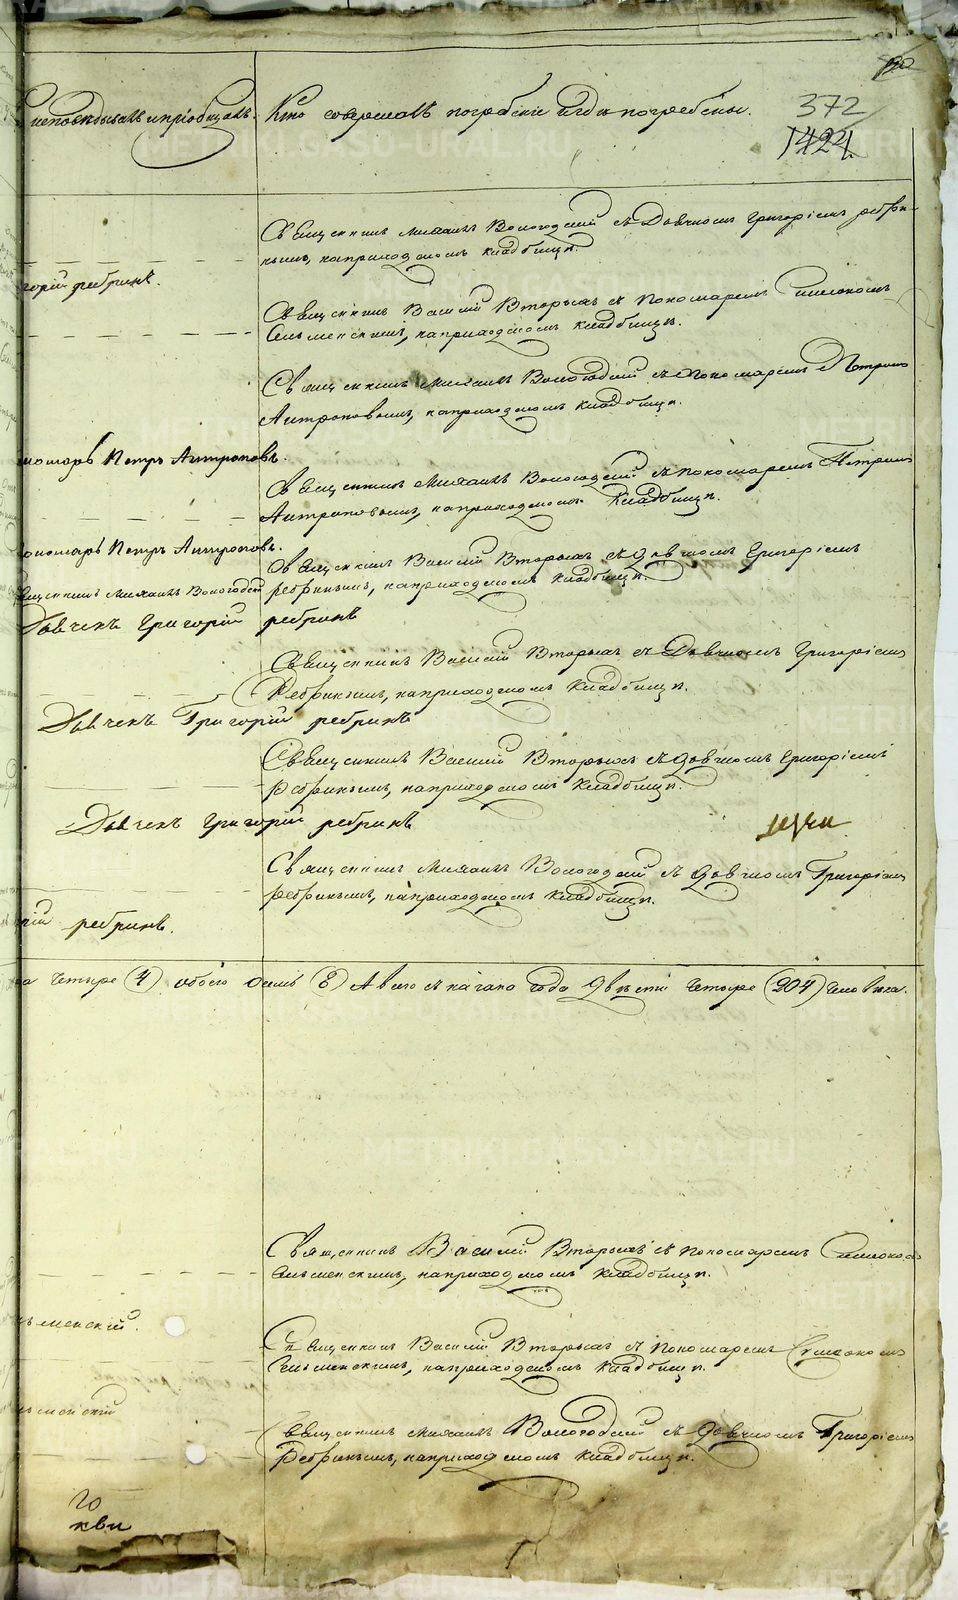 исповѣдывалъ и приобщалъ. Кто совершалъ погребеніе и гдѣ погребены.
372
1424.
Священникъ Михаилъ Вологодскій съ Дьячкомъ Григоріемъ ребри-
нымъ, на приходскомъ кладбищѣ.
горій ребринъ.
Священникъ Василій Вторыхъ съ пономаремъ Симеономъ
на приходскомъ кладбищѣ.
Священникъ Михаилъ Вологодскій съ пономаремъ Петромъ
Антроповымъ, на приходскомъ кладбищѣ.
номарь Петръ Антроповъ.
Священникъ Михаилъ Вологодскій съ пономаремъ Петромъ
Антроповымъ, на приходскомъ кладбищѣ.
ономарь Петръ Антроповъ.
Священникъ Василій Вторыхъ съ дьячкомъ Григоріемъ
ященникъ Михаилъ Вологодскій
ребринымъ, на приходскомъ кладбищѣ.
Дьячекъ Григорій ребринъ
Священникъ Василій Вторыхъ съ Дьячкомъ Григоріемъ
Ребринымъ, на приходскомъ кладбищѣ.
Дьячекъ Григорій ребринъ
Священникъ Василій Вторыхъ съ дьячкомъ Григоріемъ
Ребринымъ, на приходскомъ кладбищѣ.
Дьячекъ Григорій ребринъ
Священникъ Михаилъ Вологодскій съ дьячкомъ Григоріемъ
ребринымъ, на приходскомъ кладбищѣ.
рій ребринъ.
а четыре (4) обоего осмь (8) А всего съ начала года двѣсти четыре (204) человѣка.
Священникъ Василій Вторыхъ съ пономаремъ Симеономъ
на приходскомъ кладбищѣ.
менскій.
Священникъ Василій Вторыхъ съ пономаремъ Симеономъ
на приходскомъ кладбищѣ.
менскій
Священникъ Михаилъ Вологодскій съ Дьячкомъ Григоріемъ
Ребринымъ, на приходскомъ кладбищѣ.
METRIKI.GASO-URAL.RU